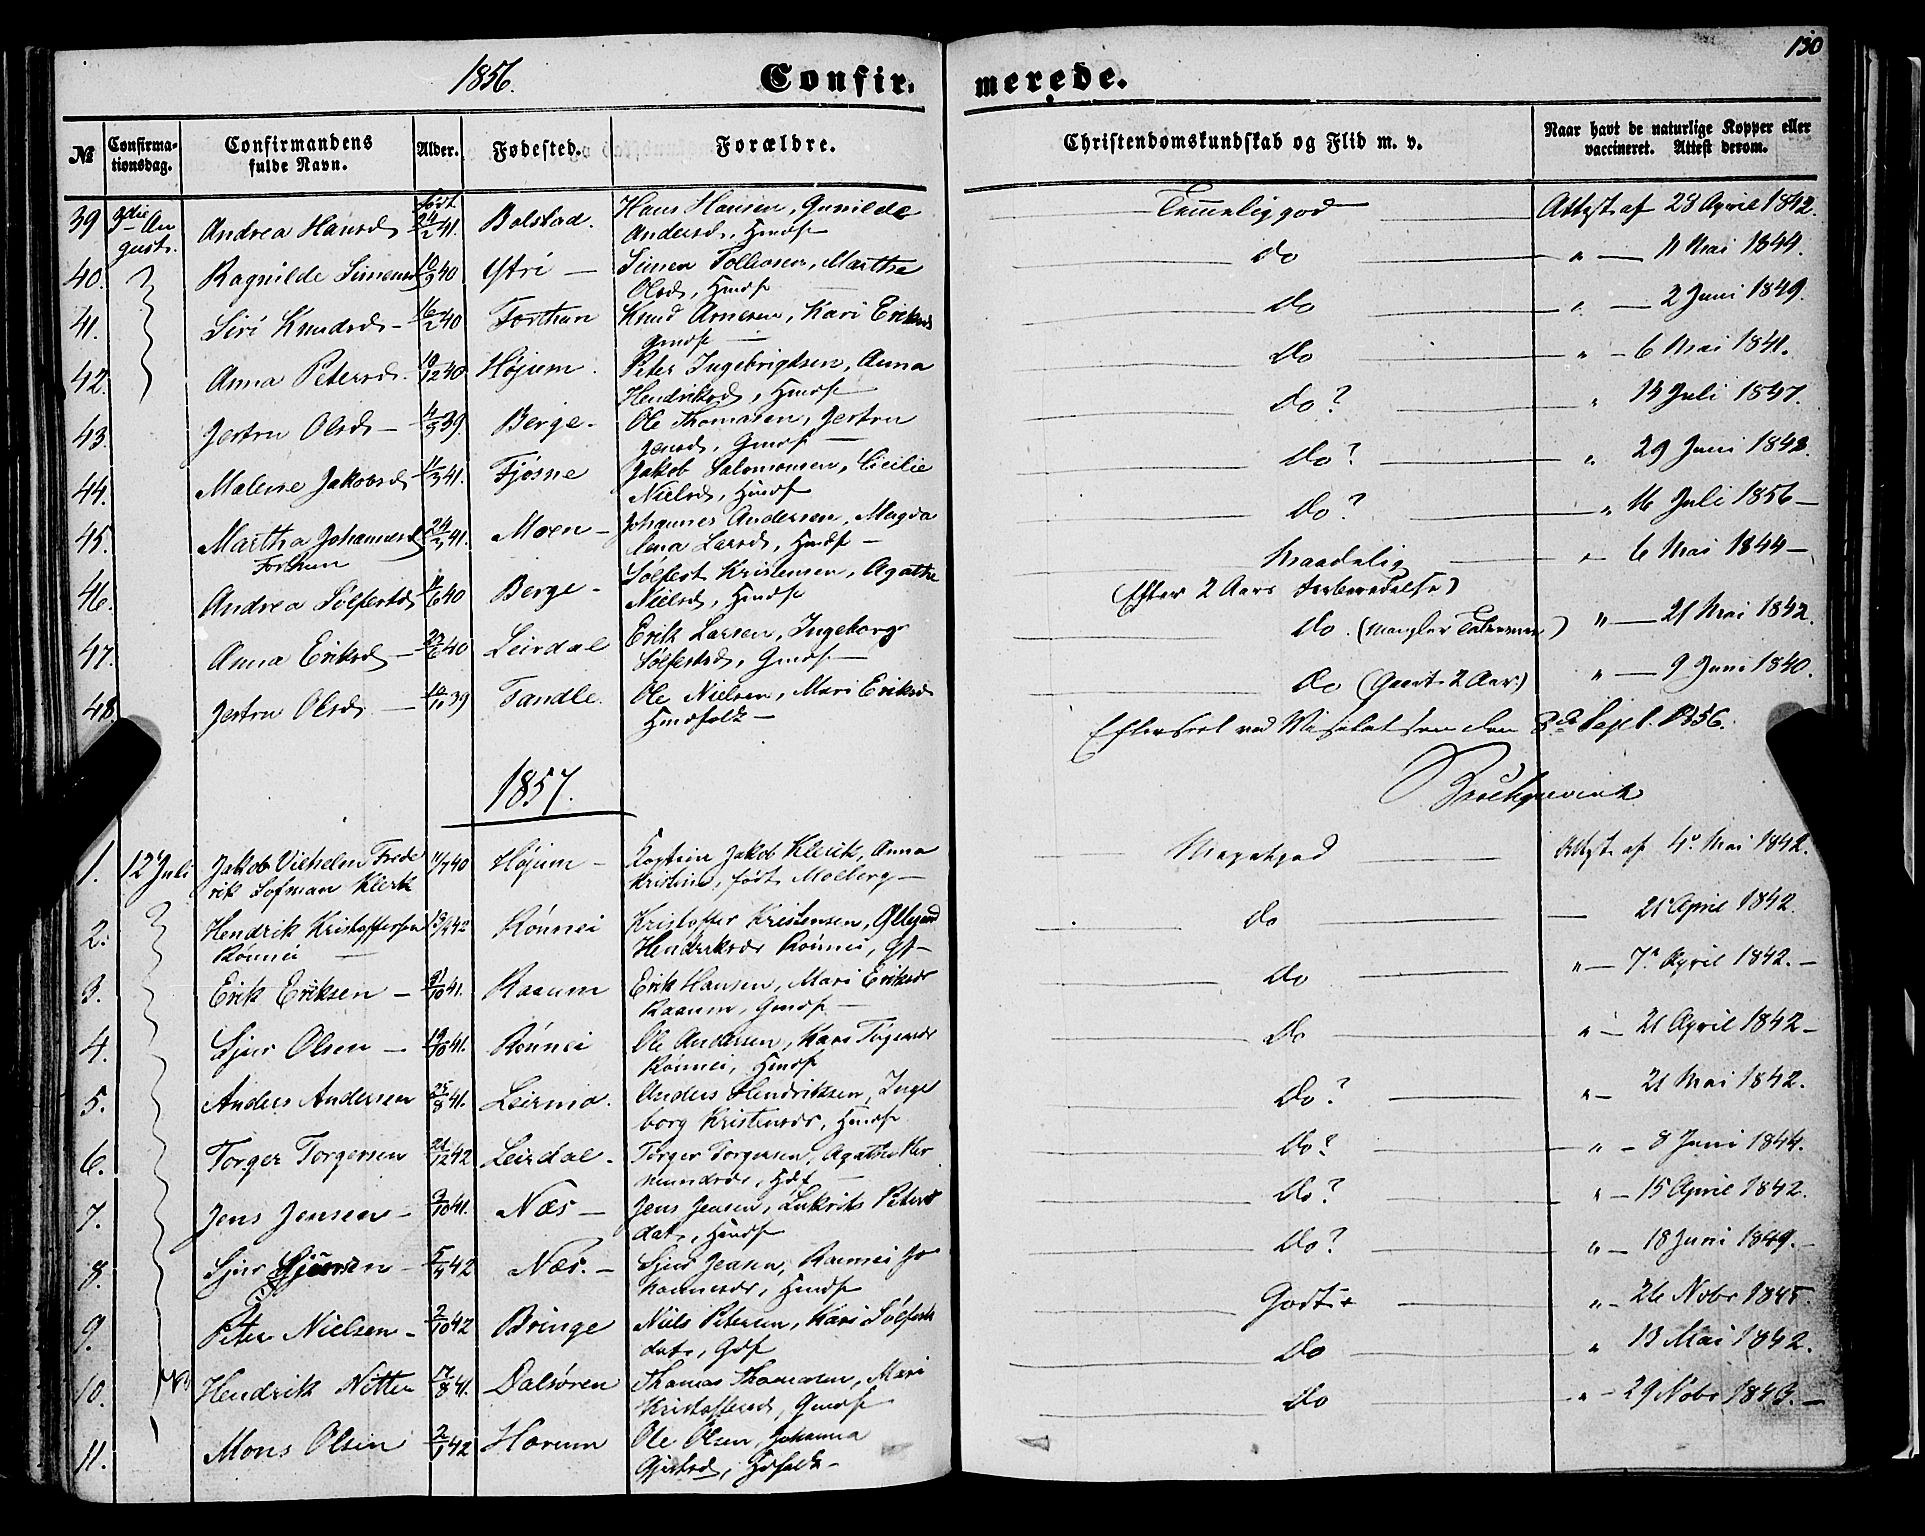 1856.
Confir-
merede.
130
№ Confirma-tionsdag. Confirmandens fulde Navn. Alder. Fødested. Forældre. Christendomskundskab og Flid m. v. Naar havt de naturlige Kopper eller vaccineret. Attest derom.
39 3die August. Andrea Hansd. født 24/2 41. Bolstad. Hans Hansen, Gunilde Andersd., Hmdsf. Temmelig god Attest af 28 April 1842.
40. Ragnilde Simensd 10/3 40 Ytri Simen Tollevsen, Marthe Olsd., Hmdsf do " 11 Mai 1844.
41. Siri Knudsd 16/2 40 Forthun Knud Arnesen, Kari Eriksd Gmdsf do " 2 Juni 1849.
42. Anna Petersd. 19/12 40 Højum. Peter Ingebrigtsen, Anna Hendriksd, Hmdsf do " 6 Mai 1841.
43. Jertru Olsd 4/5 39. Berge Ole Thomasen, Jertru Jensd, Gmdsf do? " 14 Juli 1847.
44. Malene Jakobsd 11/3 41. Fjøsne Jakob Salomonsen, Cicilie Nielsd, Hmdsf do? " 29 Juni 1842.
45. Martha Johannesd Forthun 24/3 41. Moen Johannes Andersen, Magdalena Larsd, Hmdsf do? " 16 Juli 1856
46. Andrea Sølfestsd 11/6 40 Berge Sølfest Kristensen, Agathe Nielsd, Hmdsf Maadelig (Efter 2 Aars Forberedelse) " 6 Mai 1844
47. Anna Eriksd 22/6 40 Leirdal Erik Larsen, Ingeborg Sølfestsd, Gmdsf do. (mangler Taleevne) " 21 Mai 1842.
48. Jertru Olsd. 10/11 39 Fandle. Ole Nielsen, Mari Eriksd Hmdsfolk do (Gaaet 2 Aar) " 9 Juni 1840.
Efterseet ved Visitatsen den 8de Sept. 1856.
1857.
1. 12te Juli Jakob Vilhelm Frederik Sofman Klerk 11/7 40 Højum Kaptein Jakob Klerik, Anna Kristine, født Molberg Megetgod Attest af 4de Mai 1842.
2. Hendrik Kristoffersen Rønnei 13/2 42 Rønnei Kristoffer Kristensen, Ollegard Hendriksdr Rønnei, Gf do 21 April 1842.
3. Erik Eriksen 31/10 41. Raaum Erik Hansen, Mari Eriksdr Raaum, Gmdsf do " 7de April 1842.
4. Sjur Olsen 19/10 41. Rønnei Ole Andersen, Kari Tøgersdr Rønnei, Hmdsf do " 21 April 1842
5. Anders Andersen 25/8 41. Leirmo. Anders Hendriksen, Ingeborg Kristensdr, Hmdsf do? " 21 Mai 1842.
6. Torger Torgersen 21/12 42 Leirdal Torger Torgersen, Agathe Hermundsdr, Hdf do? " 8 Juni 1844.
7. Jens Jensen 3/10 41. Næs Jens Jensen, Lukrits Petersdat, Hmdsf do? " 15 April 1842.
8. Sjur Sjursen 5/4 42 Næs. Sjur Jensen, Rannei Johannesdr, Hmdsf do? " 18 Juni 1849.
9. Peter Nielsen 2/10 42 Bringe Niels Petersen, Kari Sølfestdatr, Gdf Godt " 26 Nobr 1845.
10. Hendrik Nitter 7/8 41. Dalsøren Thomas Thomasen, Mari Kristoffersd, Gmdsf do " 13 Mai 1842.
11. Mons Olsen 2/1 42 Havum Ole Olsen, Johanna Gjertsd, Hdfolk do " 29 Nobr 1843.